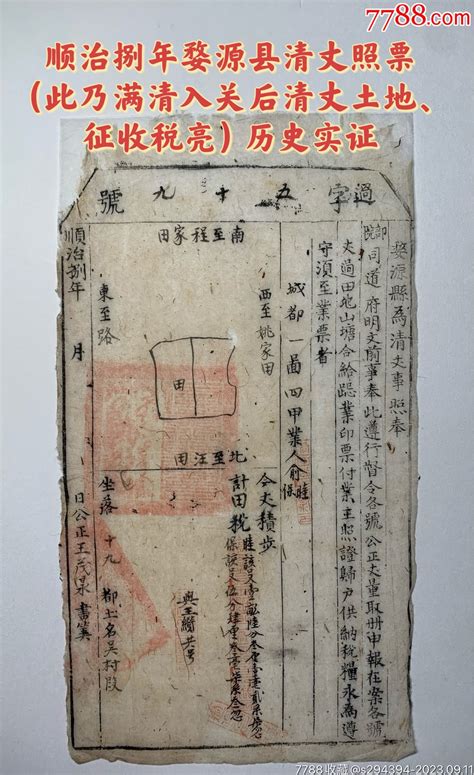 7788.com
顺治捌年婺源县清丈照票
（此乃满清入关后清丈土地、
征收税亮）历史实证
過字五十九號
婺源縣為清丈事照奉
部院司道府明文前事奉此遵行督令各號公正丈量取冊申報在案各號
丈過田地山塘合給歸業印票付業主照證歸戶供納稅糧永為遵
守須至業票者
城都一啚四甲業人俞
睦
保
南至程家田
西至姚家田
田
東至路
北至汪田
今丈積步
計田稅
與王纘共号
坐落十九都土名吴村段
順治捌年 月 日公正王茂 書算
7788收藏@s294394-2023.09.11